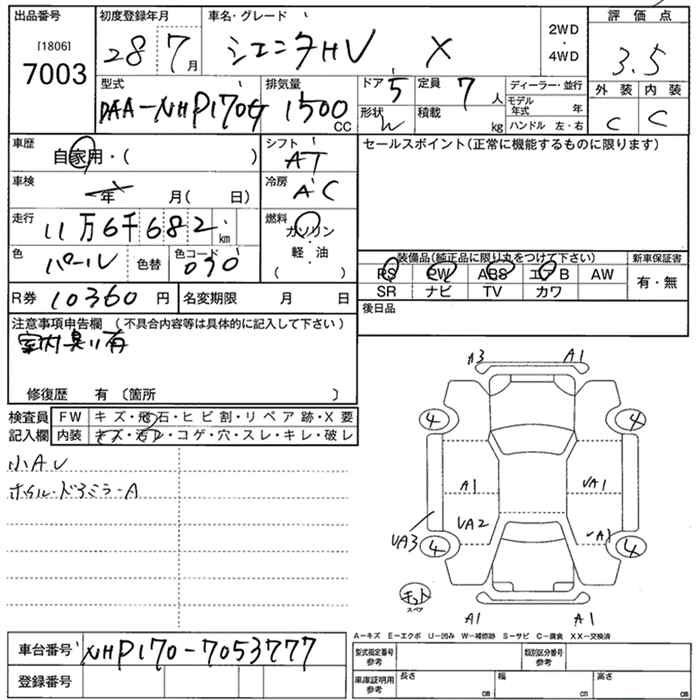 出品番号 初度登録年月 車名・グレード 評価点
[1806]
7003
28 7月 シエンタHV X 2WD・4WD 3.5
型式 排気量 ドア 5 定員 7人 ディーラー・並行 外装 内装
DAA-NHP170G 1500cc 形状 W 積載 kg モデル年式 年 C C
ハンドル 左・右
車歴 自家用・( ) シフト AT セールスポイント(正常に機能するものに限ります)
車検 年 月( 日) 冷房 AC
走行 11万6千682km 燃料 ガソリン
軽・油
( )
色 パール 色替 色コード 070 装備品(純正品に限り丸をつけて下さい) 新車保証書
PS PW ABS エアB AW 有・無
SR ナビ TV カワ
R券 10360円 名変期限 月 日 後日品
注意事項申告欄 (不具合内容等は具体的に記入して下さい)
室内臭い有
修復歴 有 〔箇所 〕
検査員 FW キズ・飛石・ヒビ割・リペア跡・X要
記入欄 内装 キズ・汚レ・コゲ・穴・スレ・キレ・破レ
小AU
ホイル・ドアミラーA
A3 A1
4 4
A1 UA1
UA2 UA1
UA3 4 4
キット
スペア
A1 A1
A-キズ E-エクボ U-凹み W-補修跡 S-サビ C-腐食 XX-交換済
車台番号 NHP170-7053777 型式指定番号 参考 類別区分番号 参考
登録番号 車庫証明用 参考 長さ cm 幅 cm 高さ cm